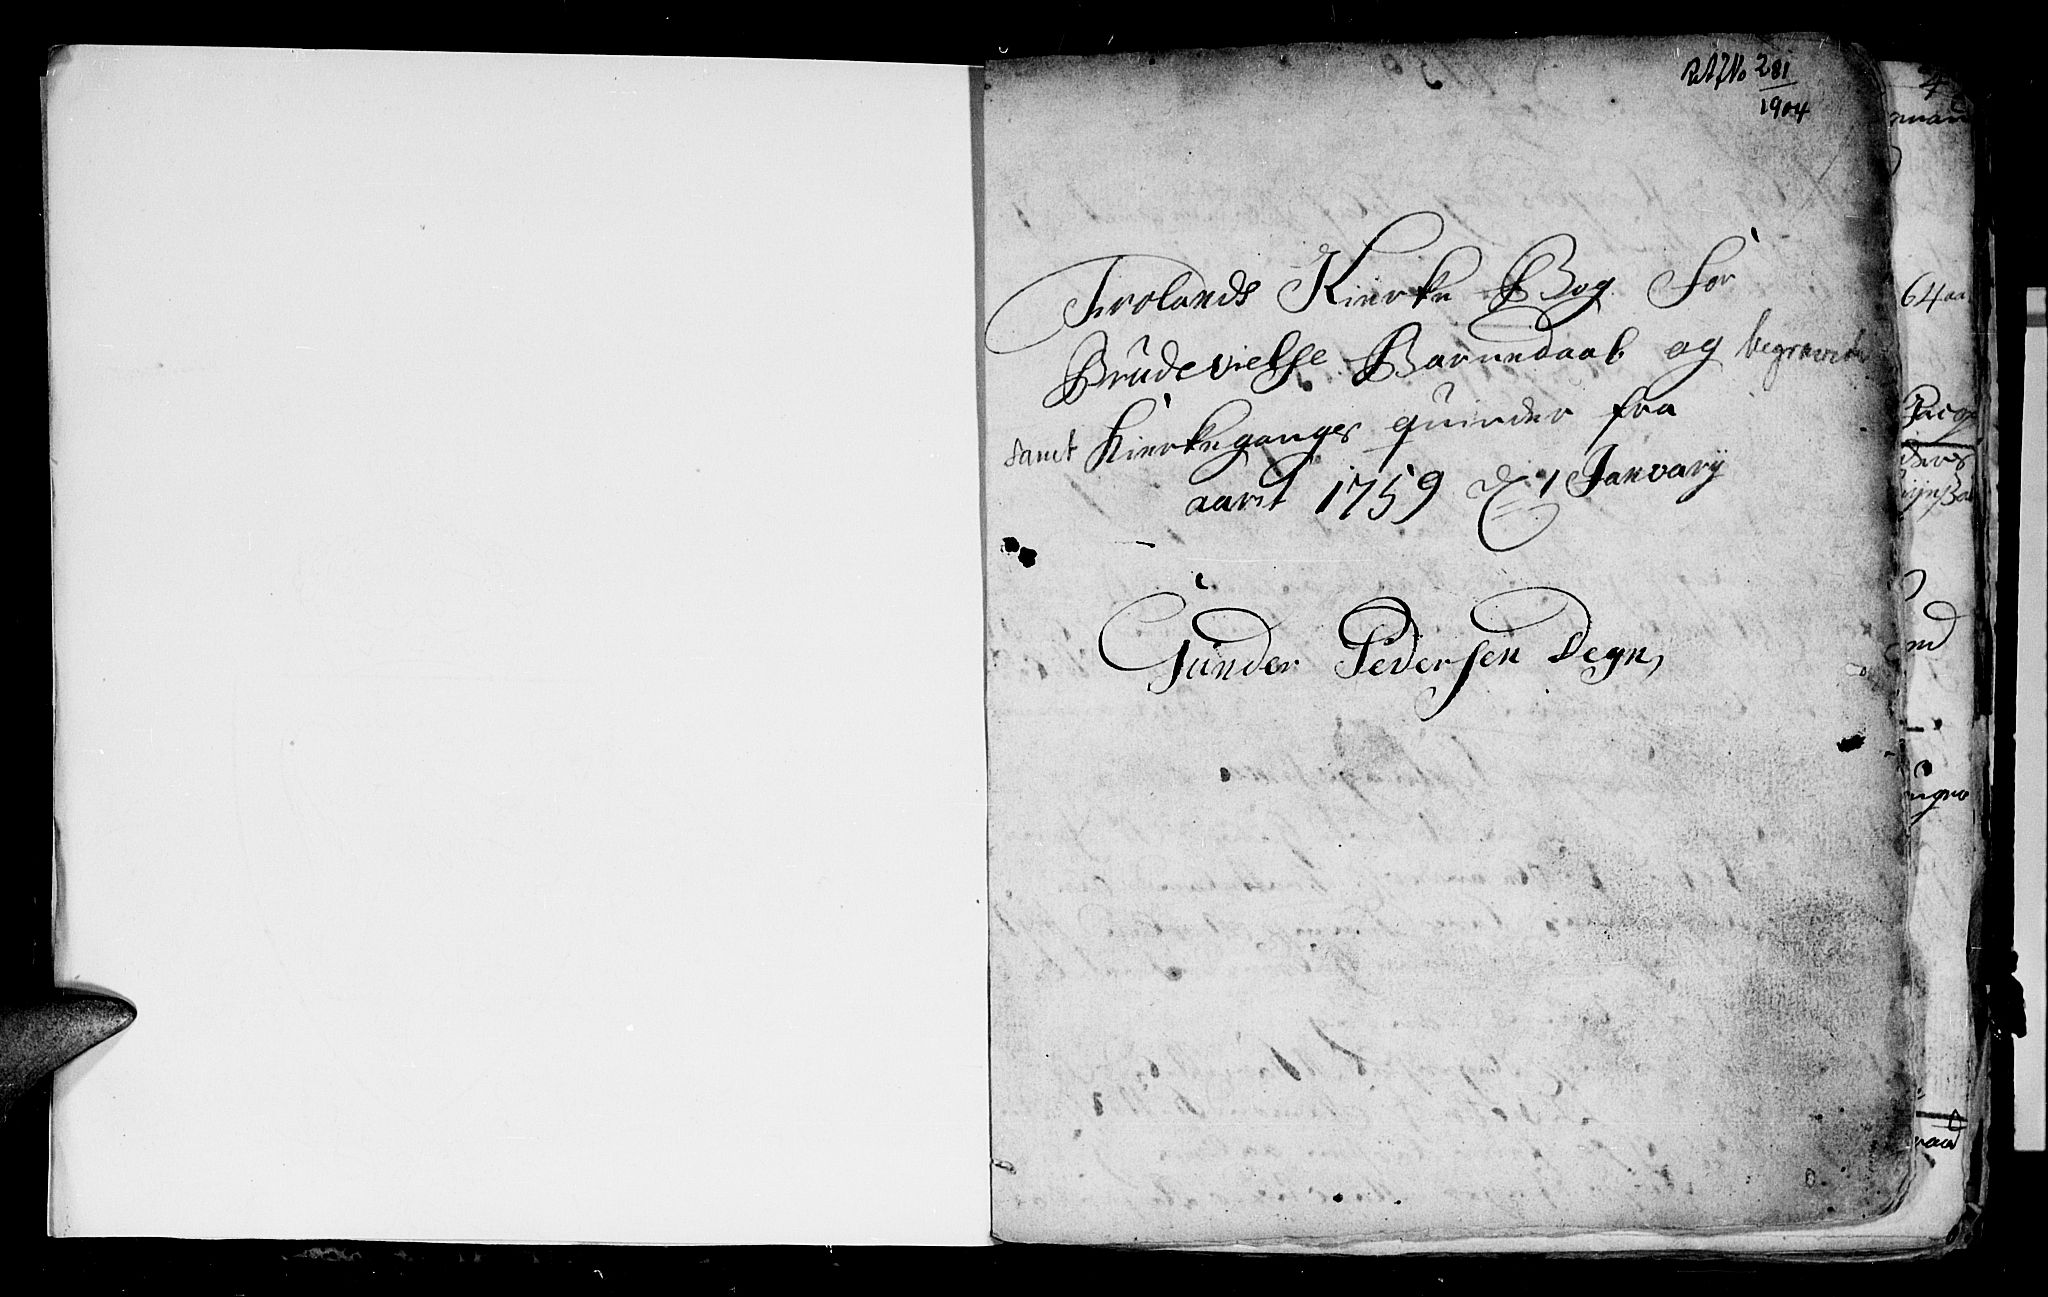 281
1904
Frolands Kierke Bog for
Brüdevielse Barnedaab og begravelse
samt Kierkegangs quinder fra
aaret 1759 d 1 Janvarij
Günder Pedersen Degn,
4
64 aa
Jacop
nd